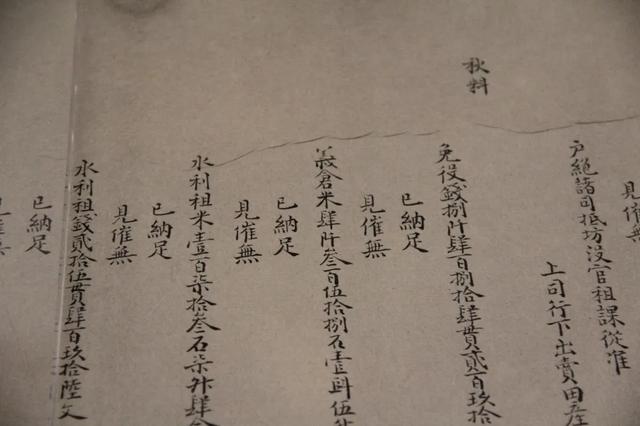 見催無
戶絕諸司抵坊沒官租課從准
上司行下出賣田產
秋料
免役錢捌阡肆百捌拾肆貫貳百玖拾
已納足
見催無
義倉米肆阡叁百伍拾捌石壹㪷伍升
已納足
見催無
水利租米壹百柒拾叁石柒升肆合
已納足
見催無
水利租錢貳拾伍貫肆百玖拾陸文
已納足
見催無